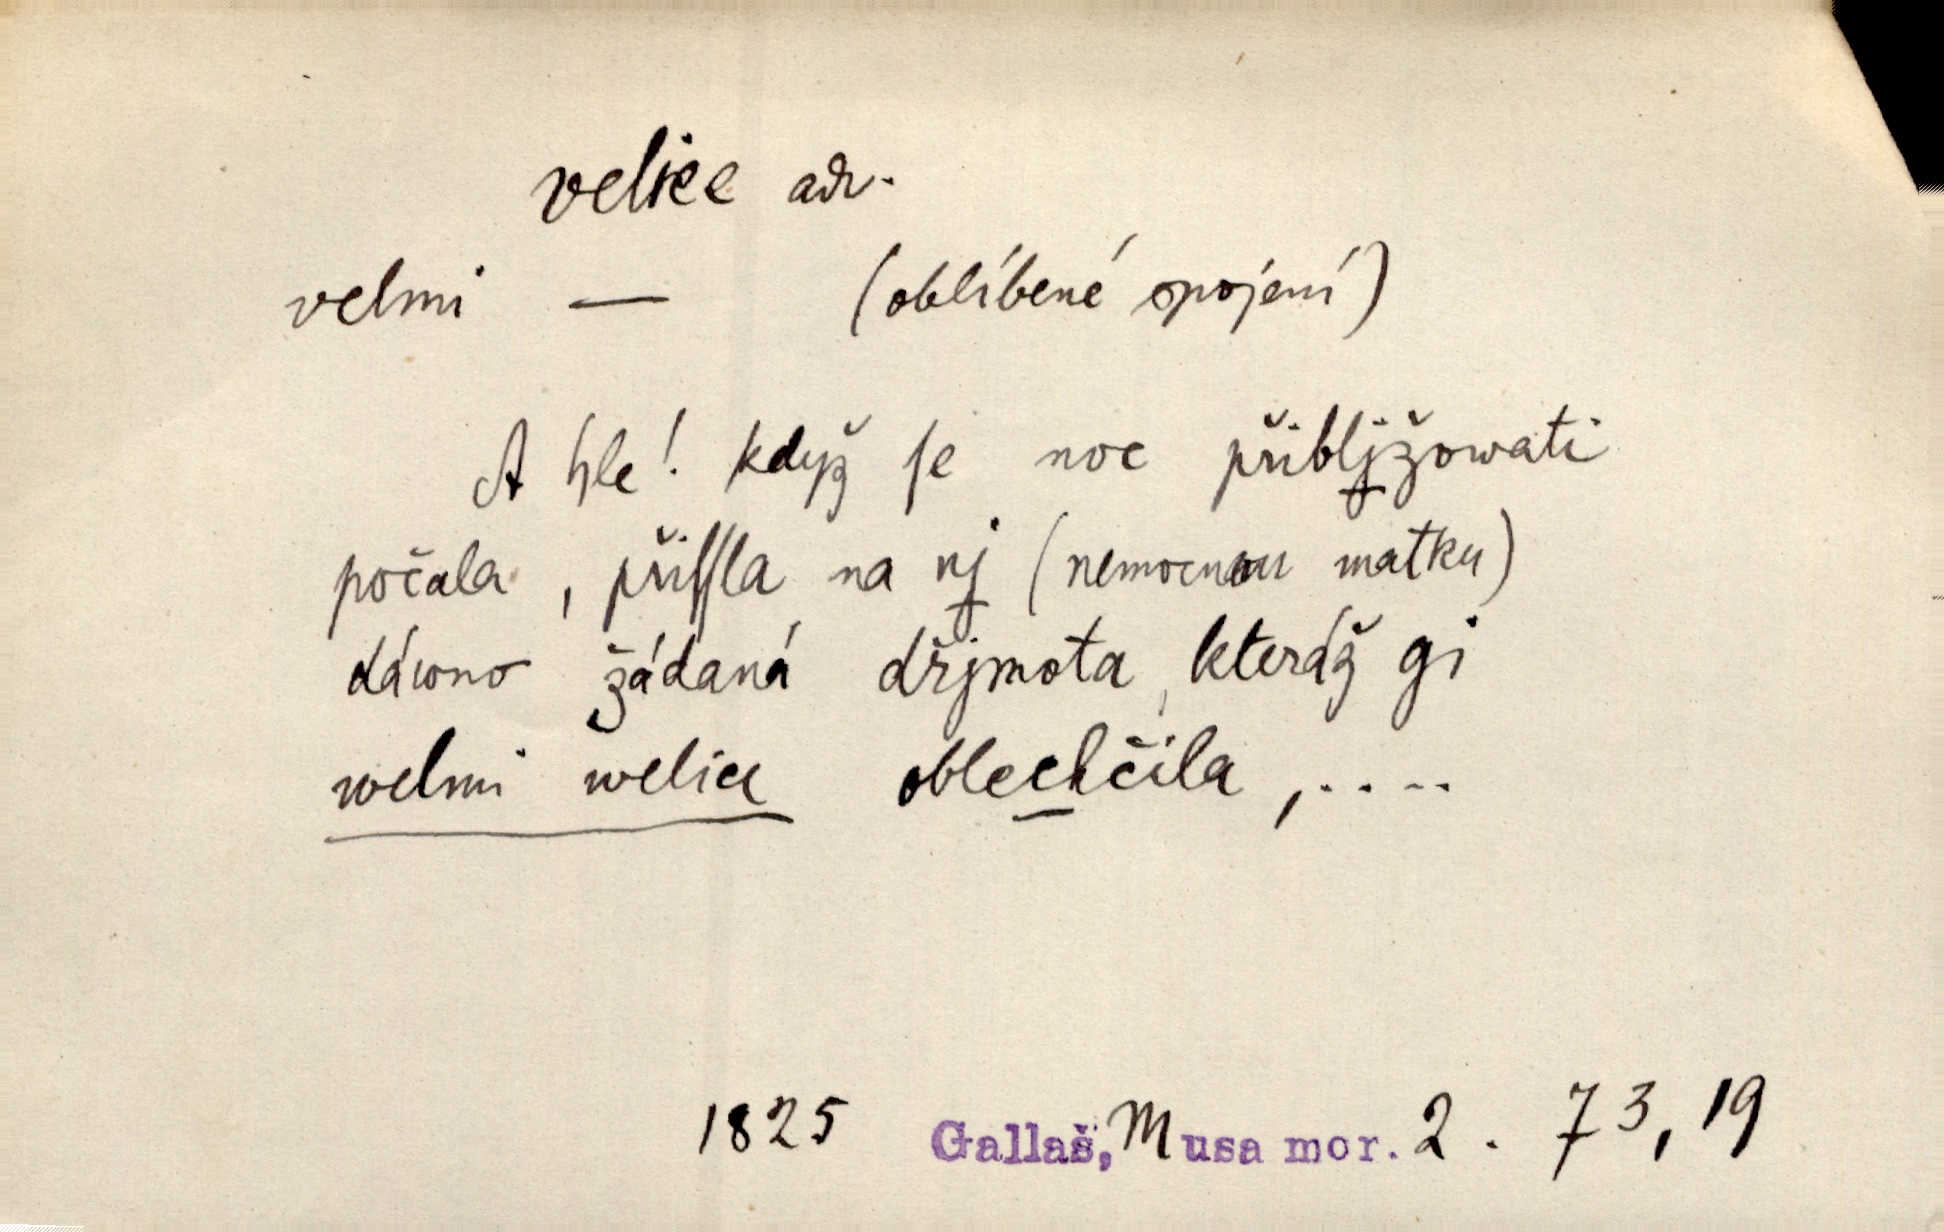 velice adv.
velmi — (oblíbené spojení)
A hle! když ſe noc přibljžowati
počala, přiſſla na nj (nemocnou matku)
dáwno žádaná dřjmota, kteráž gi
welmi welice oblechčila, ....
1825 Gallaš, Musa mor. 2. 73, 19